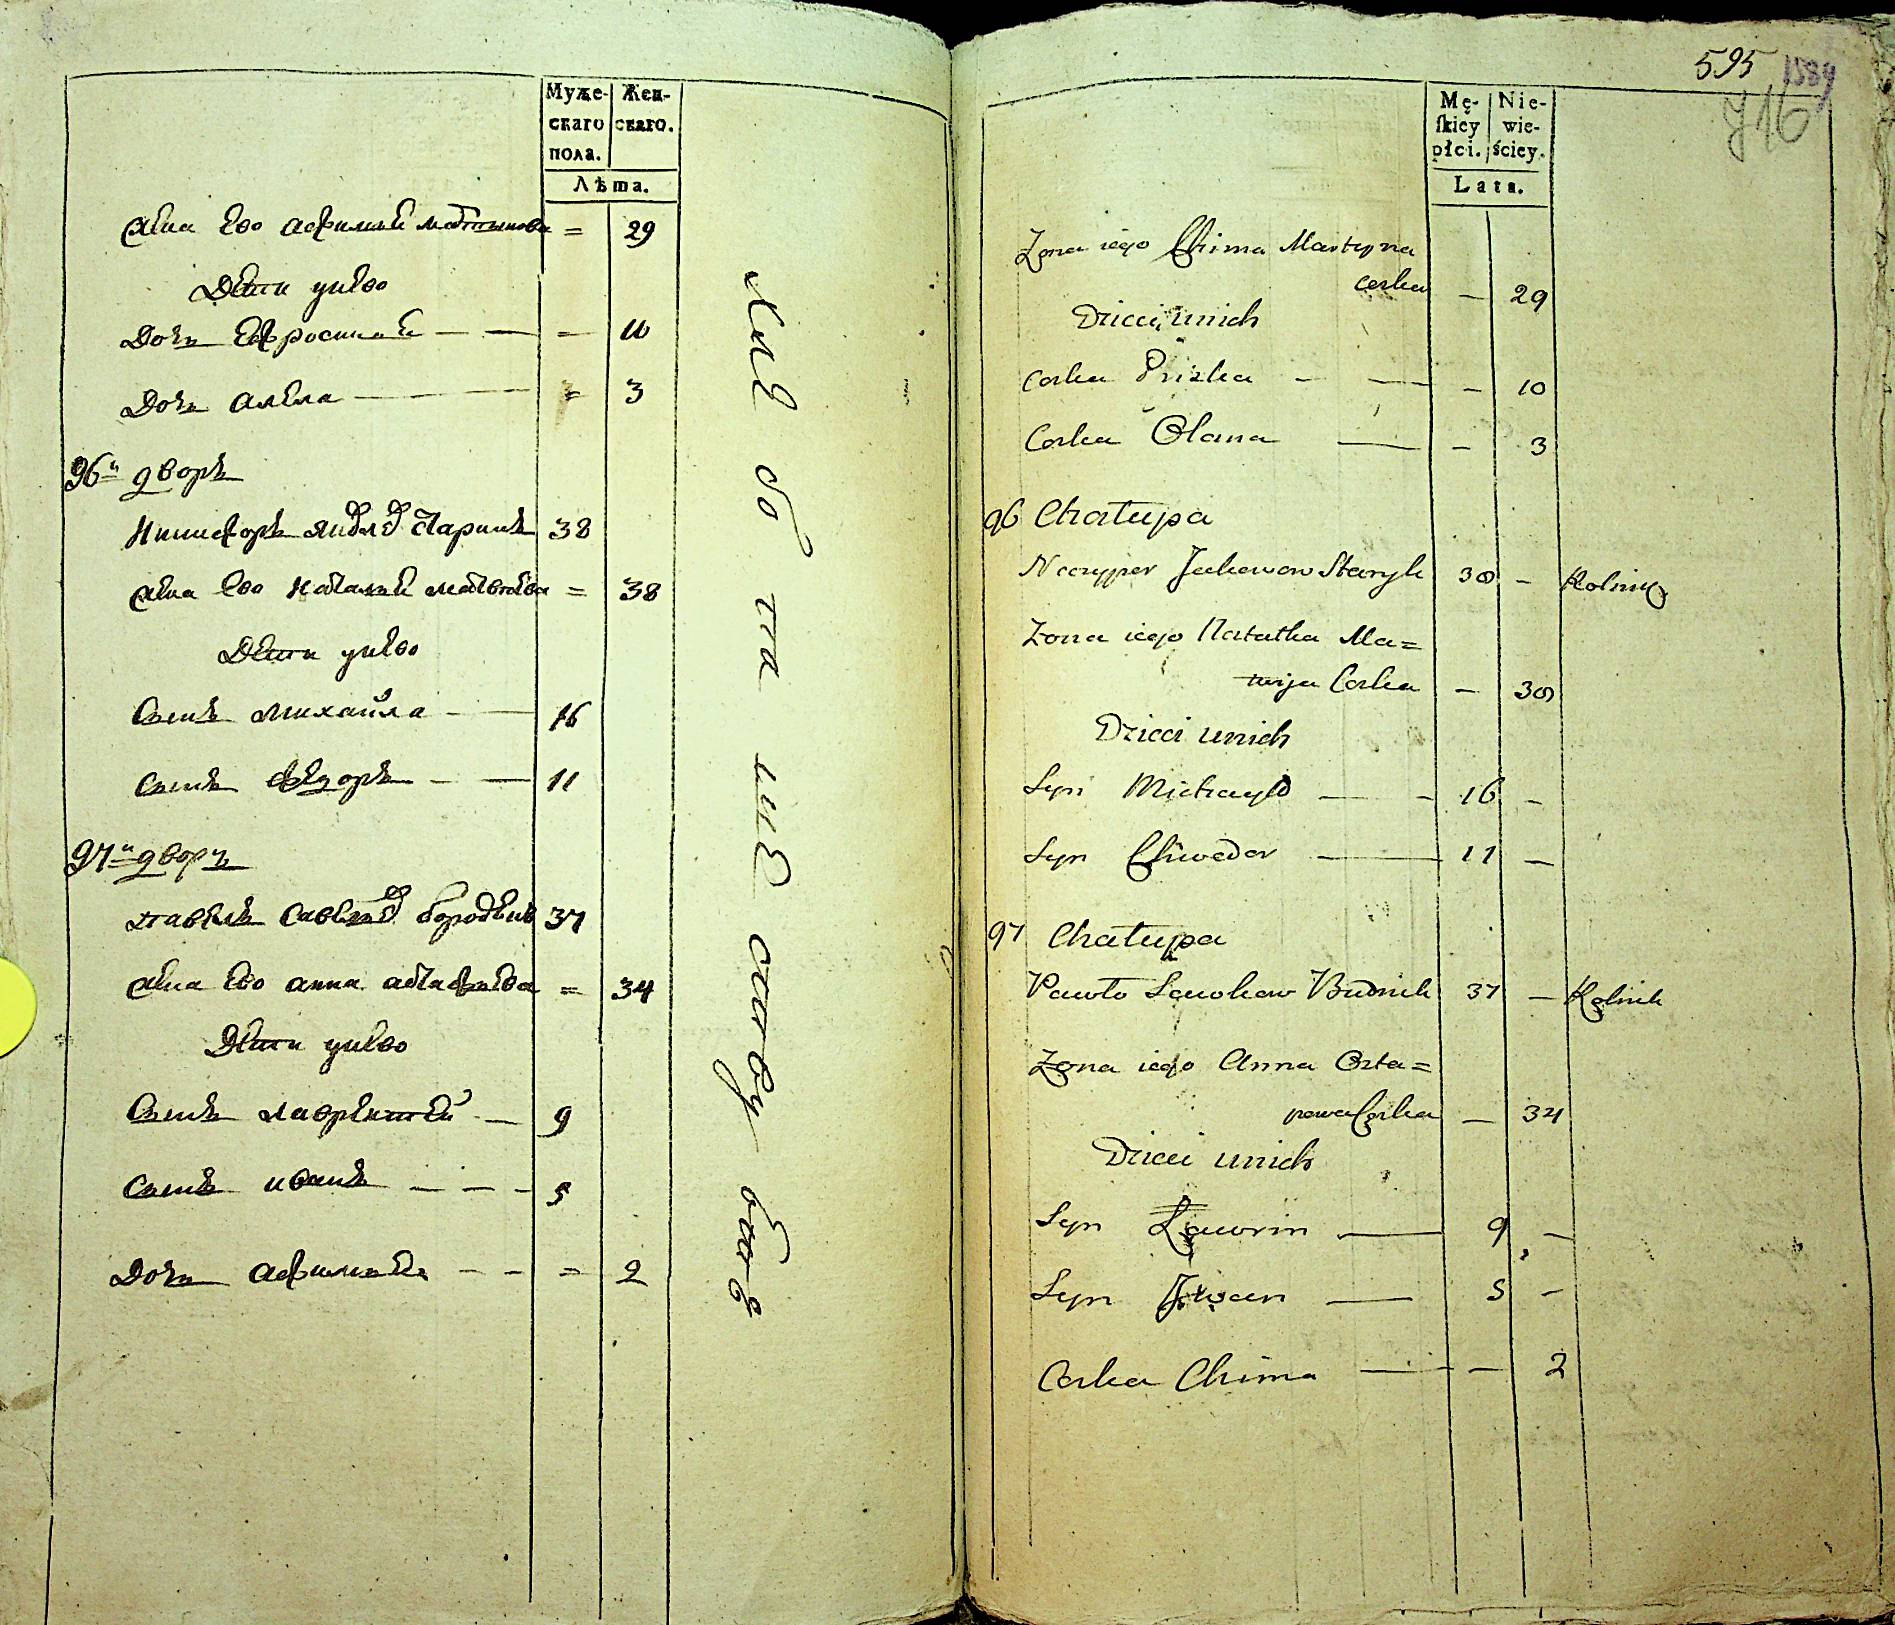 Муже-
скаго
пола.
Жен-
скаго.
Лѣта.
жена ево афимья мартынова = 29
Дѣти унево
Дочь Ефросинья — — = 10
Дочь алена — = 3
96й дворъ
Никифоръ Старикъ 38
жена ево Наталья матвѣева = 38
Дѣти унево
Сынъ михайла — 16
Сынъ Федоръ — 11
97й дворъ
павелъ 37
жена ево анна = 34
Дѣти унево
Сынъ лаврентей — 9
Сынъ иванъ — — — 5
Дочь афимья — — = 2
595
1589
716
Mę-
ſkiey
płci.
Nie-
wie-
ściey.
Lata.
Zona iego Chima Martyna
corka — 29
Dzieci unich
Corka Prizka — — — 10
Corka Olana — — 3
96 Chałupa
Neczyper Jakowow Staryk 38 — Rolnik
Zona iego Natałka Ma=
twija Corka — 38
Dzieci unich
Syn Michayło — — 16 —
Syn Chwedor — 11 —
97 Chałupa
Pawło Sawkow Budnik 37 — Rolnik
Zona iego Anna Osta=
powa Corka — 34
Dzieci unich
Syn Ławrin — 9 —
Syn Iwan — 5 —
Corka Chima — — 2